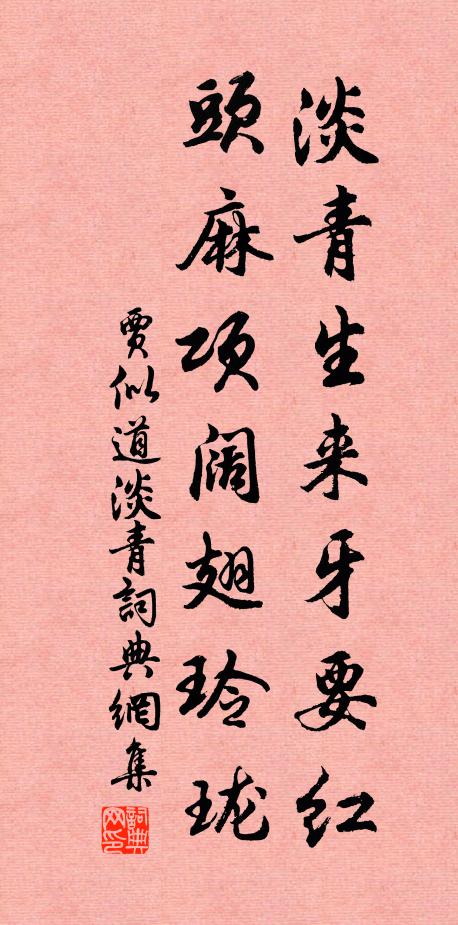 淡青生来牙要红
頭麻项阔翅玲珑
贾似道淡青詞典網集
詞典
网印